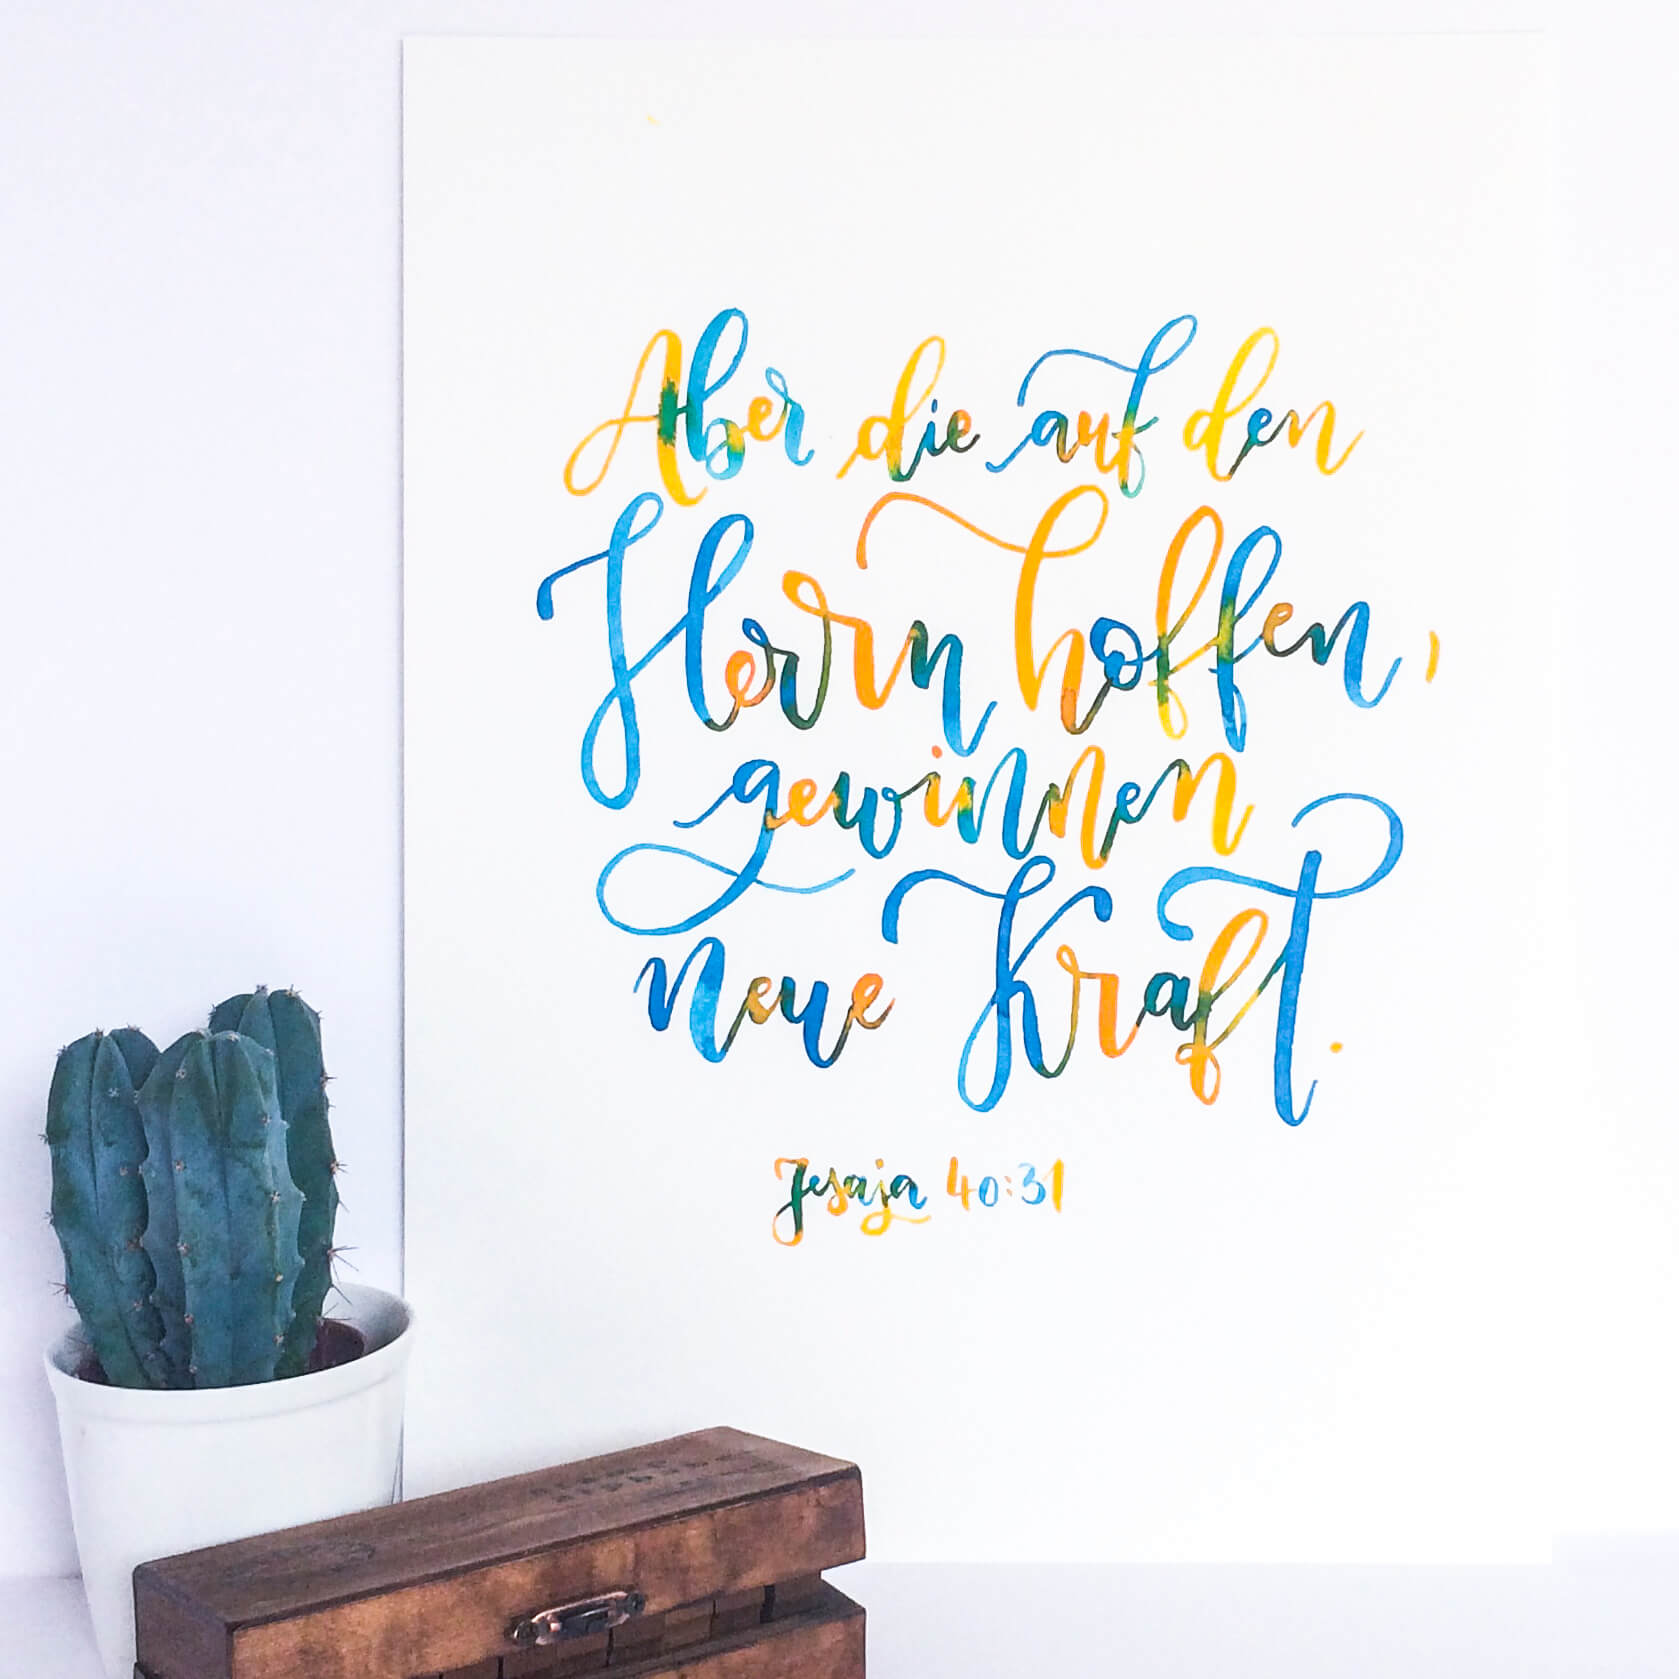 Aber die auf den
Herrn hoffen,
gewinnen
neue Kraft.
Jesaja 40:31